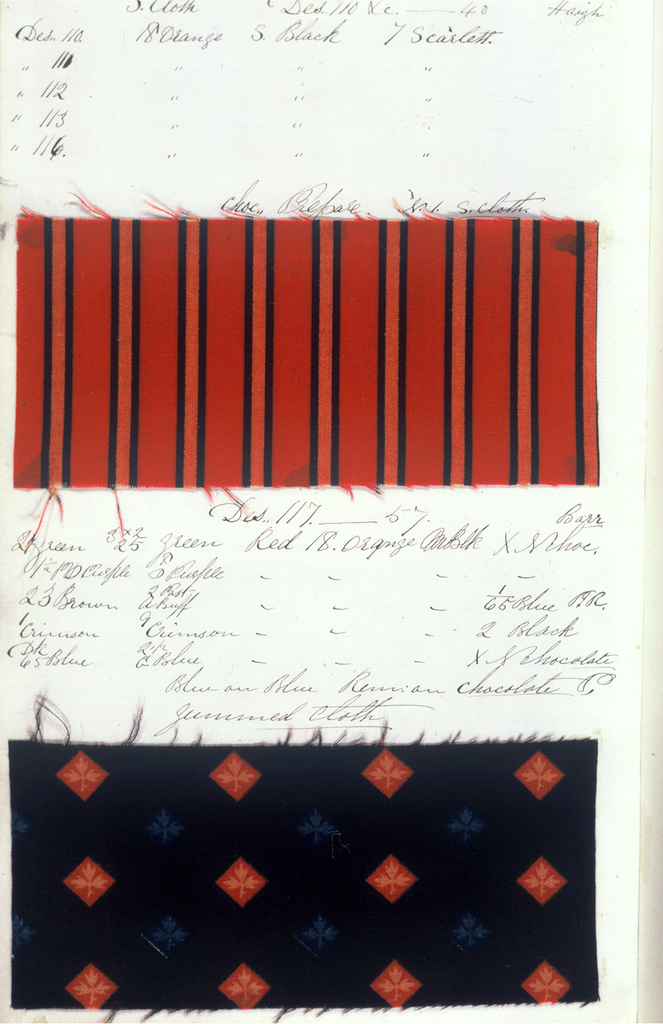 S. Cloth Des. 110 &c. — 40 Haigh
Des. 110. 18 Orange S. Black 7 Scarlett.
" 111 " " "
" 112 " " "
" 113 " " "
" 116. " " "
Choc,, Prepare. No. 1. S. Cloth.
Des. 117. — 57. Barr
2 green 25 green Red 18. Orange Blk X N Choc.
Purple Purple - - - -
23 Brown Buff - - - Blue P.R.
1 Crimson 9 Crimson - - - 2 Black
DK 65 Blue Blue - - - X N Chocolate
Blue on Blue Rem: on Chocolate P
gummed cloth